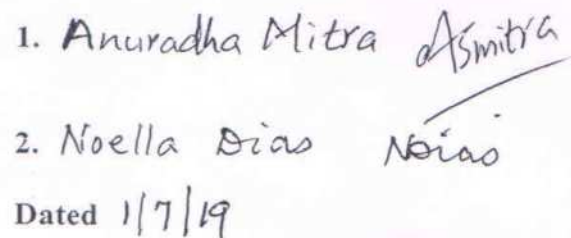 1. Anuradha Mitra Asmitra
2. Noella Dias NDias
Dated 1/7/19